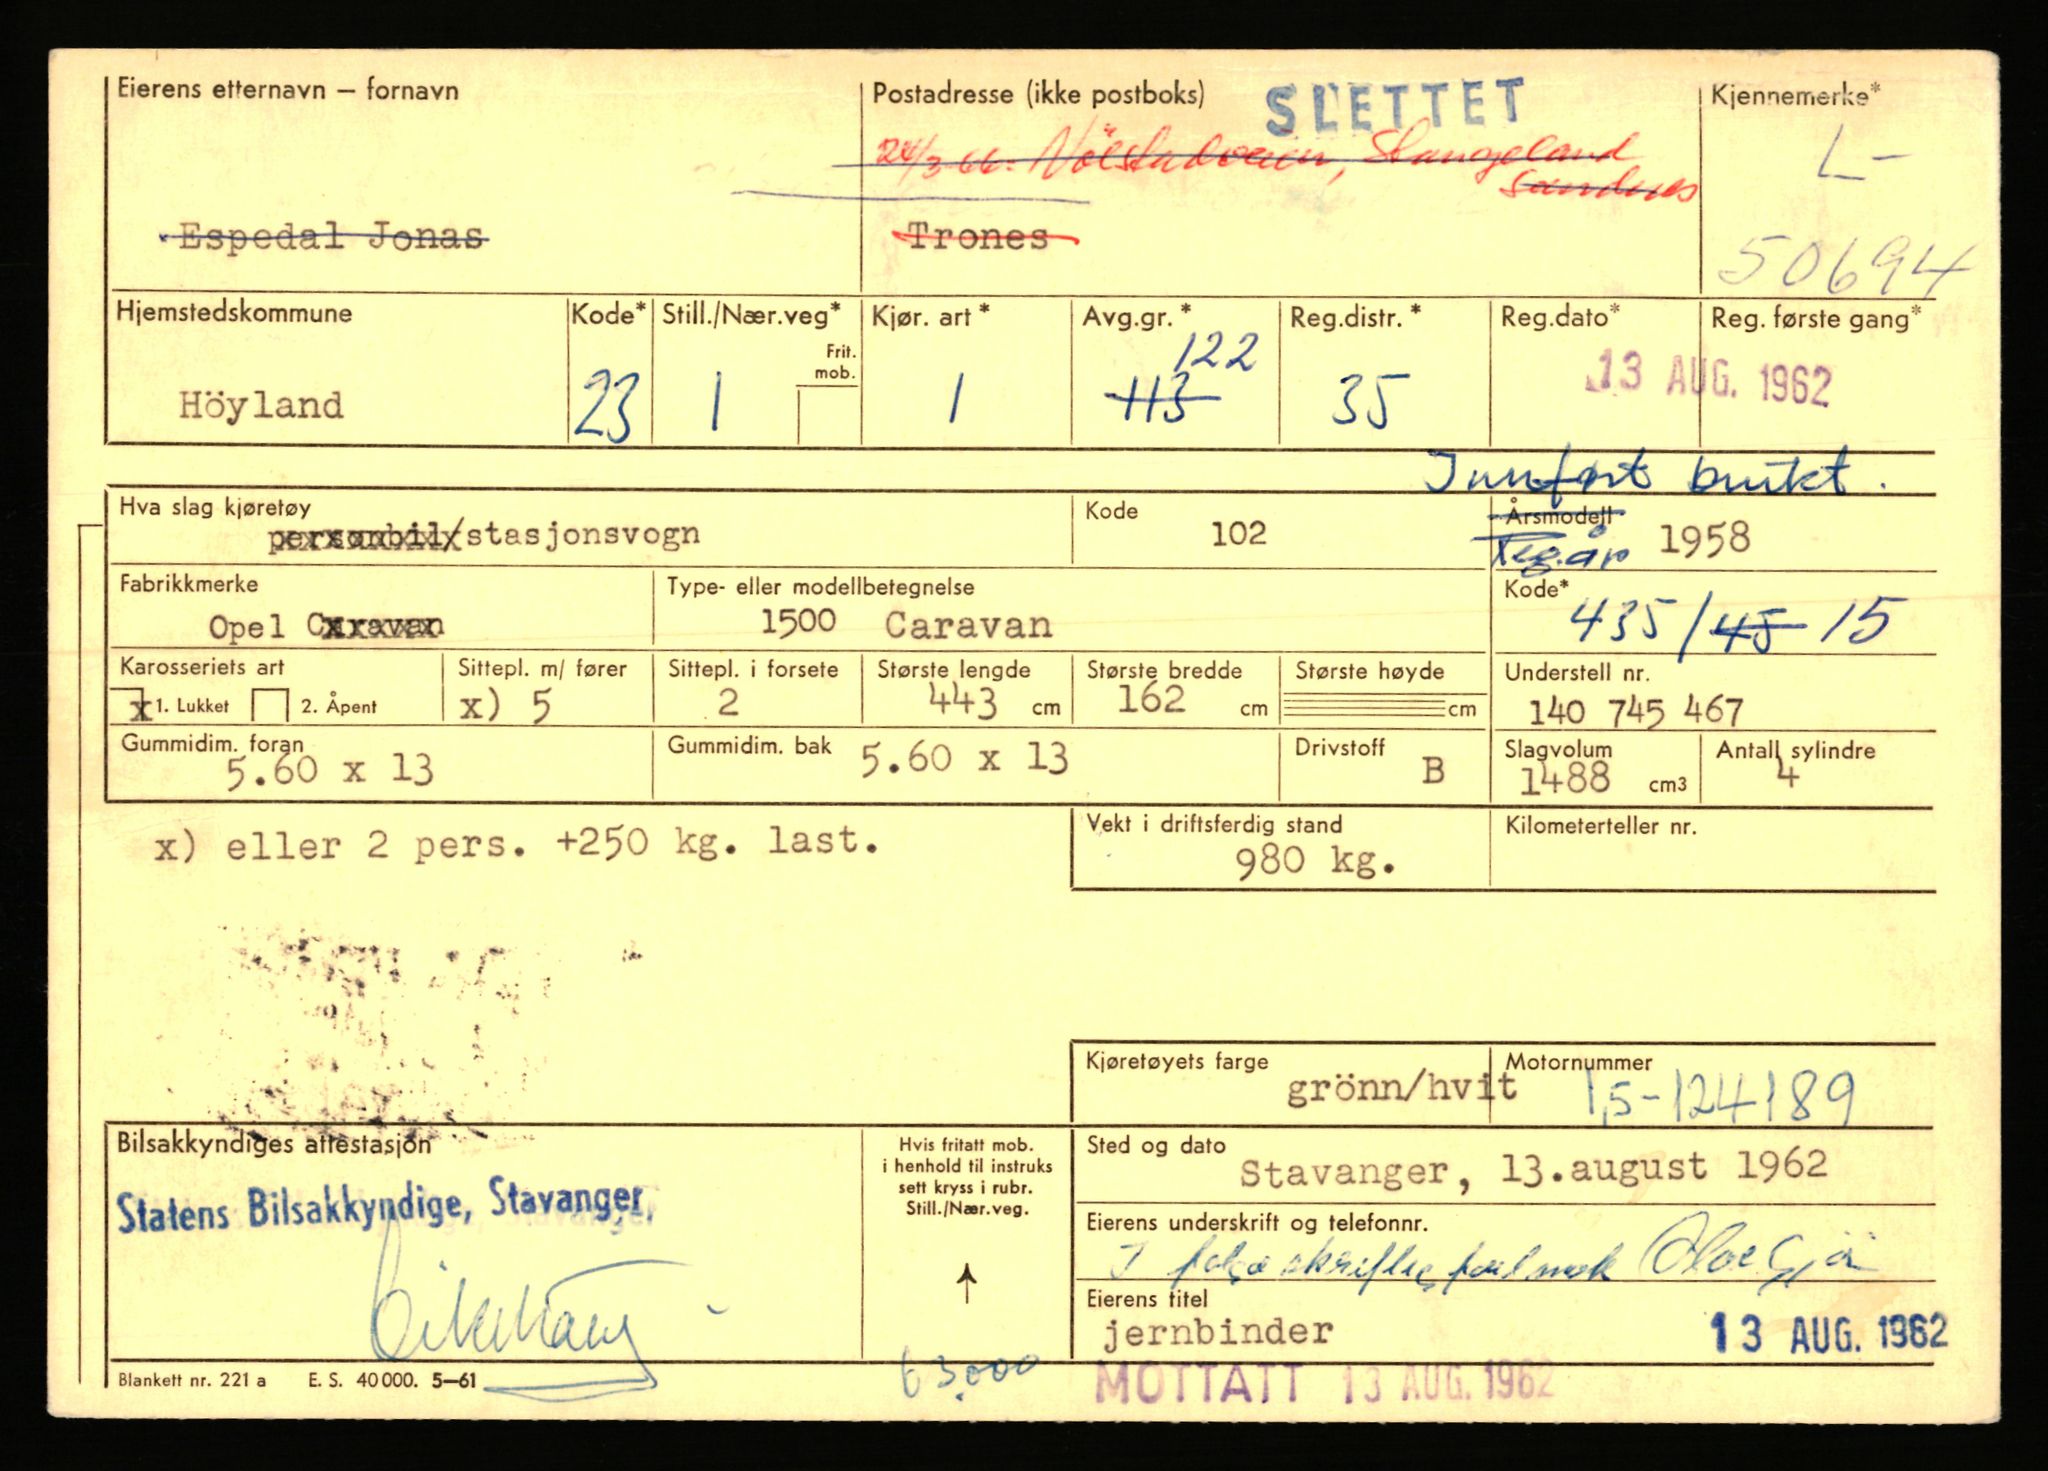 Eierens etternavn – fornavn
Postadresse (ikke postboks)
SLETTET
Kjennemerke*
24/3 66. Stangeland
Sandnes
L-
Espedal Jonas
Trones
50694
Hjemstedskommune
Kode*
Still./Nær.veg*
Kjør. art *
Avg.gr. *
Reg.distr. *
Reg.dato*
Reg. første gang*
Frit. mob.
122
Höyland
23
1
1
113
35
13 AUG. 1962
Innført brukt.
Hva slag kjøretøy
personbil/stasjonsvogn
Kode
102
Årsmodell
Reg.år
1958
Fabrikkmerke
Opel Caravan
Type- eller modellbetegnelse
1500 Caravan
Kode*
435/45 15
Karosseriets art
x 1. Lukket
2. Åpent
Sittepl. m/ fører
x) 5
Sittepl. i forsete
2
Største lengde
443 cm
Største bredde
162 cm
Største høyde
cm
Understell nr.
140 745 467
Gummidim. foran
5.60 x 13
Gummidim. bak
5.60 x 13
Drivstoff
B
Slagvolum
1488 cm3
Antall sylindre
4
x) eller 2 pers. +250 kg. last.
Vekt i driftsferdig stand
980 kg.
Kilometerteller nr.
Kjøretøyets farge
grönn/hvit
Motornummer
1,5-124189
Bilsakkyndiges attestasjon
Statens Bilsakkyndige, Stavanger.
Hvis fritatt mob.
i henhold til instruks
sett kryss i rubr.
Still./Nær.veg.
Sted og dato
Stavanger, 13.august 1962
Eierens underskrift og telefonnr.
I følge skriftlig
Eierens titel
jernbinder
13 AUG. 1962
Blankett nr. 221 a E. S. 40 000. 5–61
63.000
MOTTATT 13 AUG. 1962